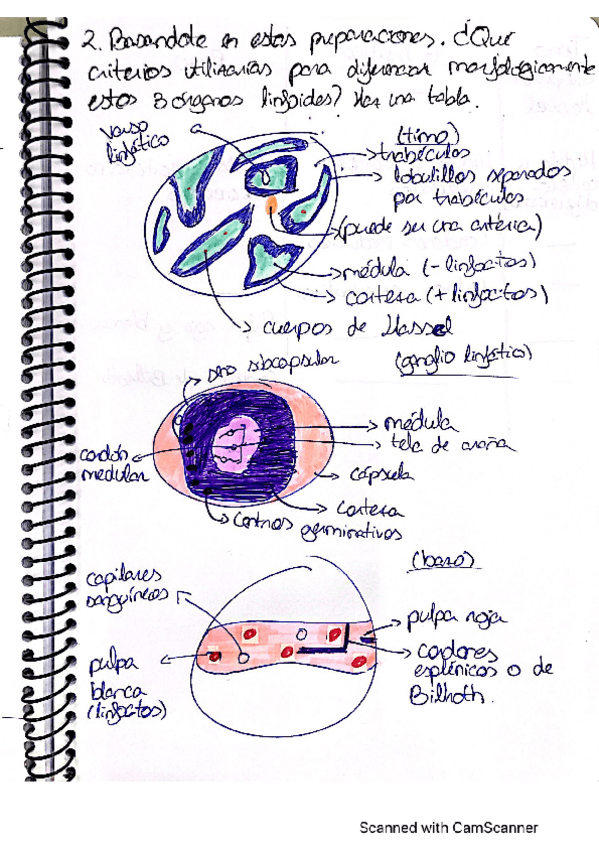 2. Basandote en estas preparaciones. ¿Qué
criterios utilizarías para diferenciar morfológicamente
estos 3 órganos linfoides? Haz una tabla.
vaso
linfático
(timo)
trabéculas
lobulillos separados
por trabéculas
(puede ser una arteria)
médula (- linfocitos)
corteza (+ linfocitos)
cuerpos de Hassel
seno subcapsular
(ganglio linfático)
médula
tela de araña
cordón
medular
cápsula
corteza
centros germinativos
(bazo)
capilares
sanguíneos
pulpa roja
cordones
esplénicos o de
Bilhoth.
pulpa
blanca
(linfocitos)
Scanned with CamScanner